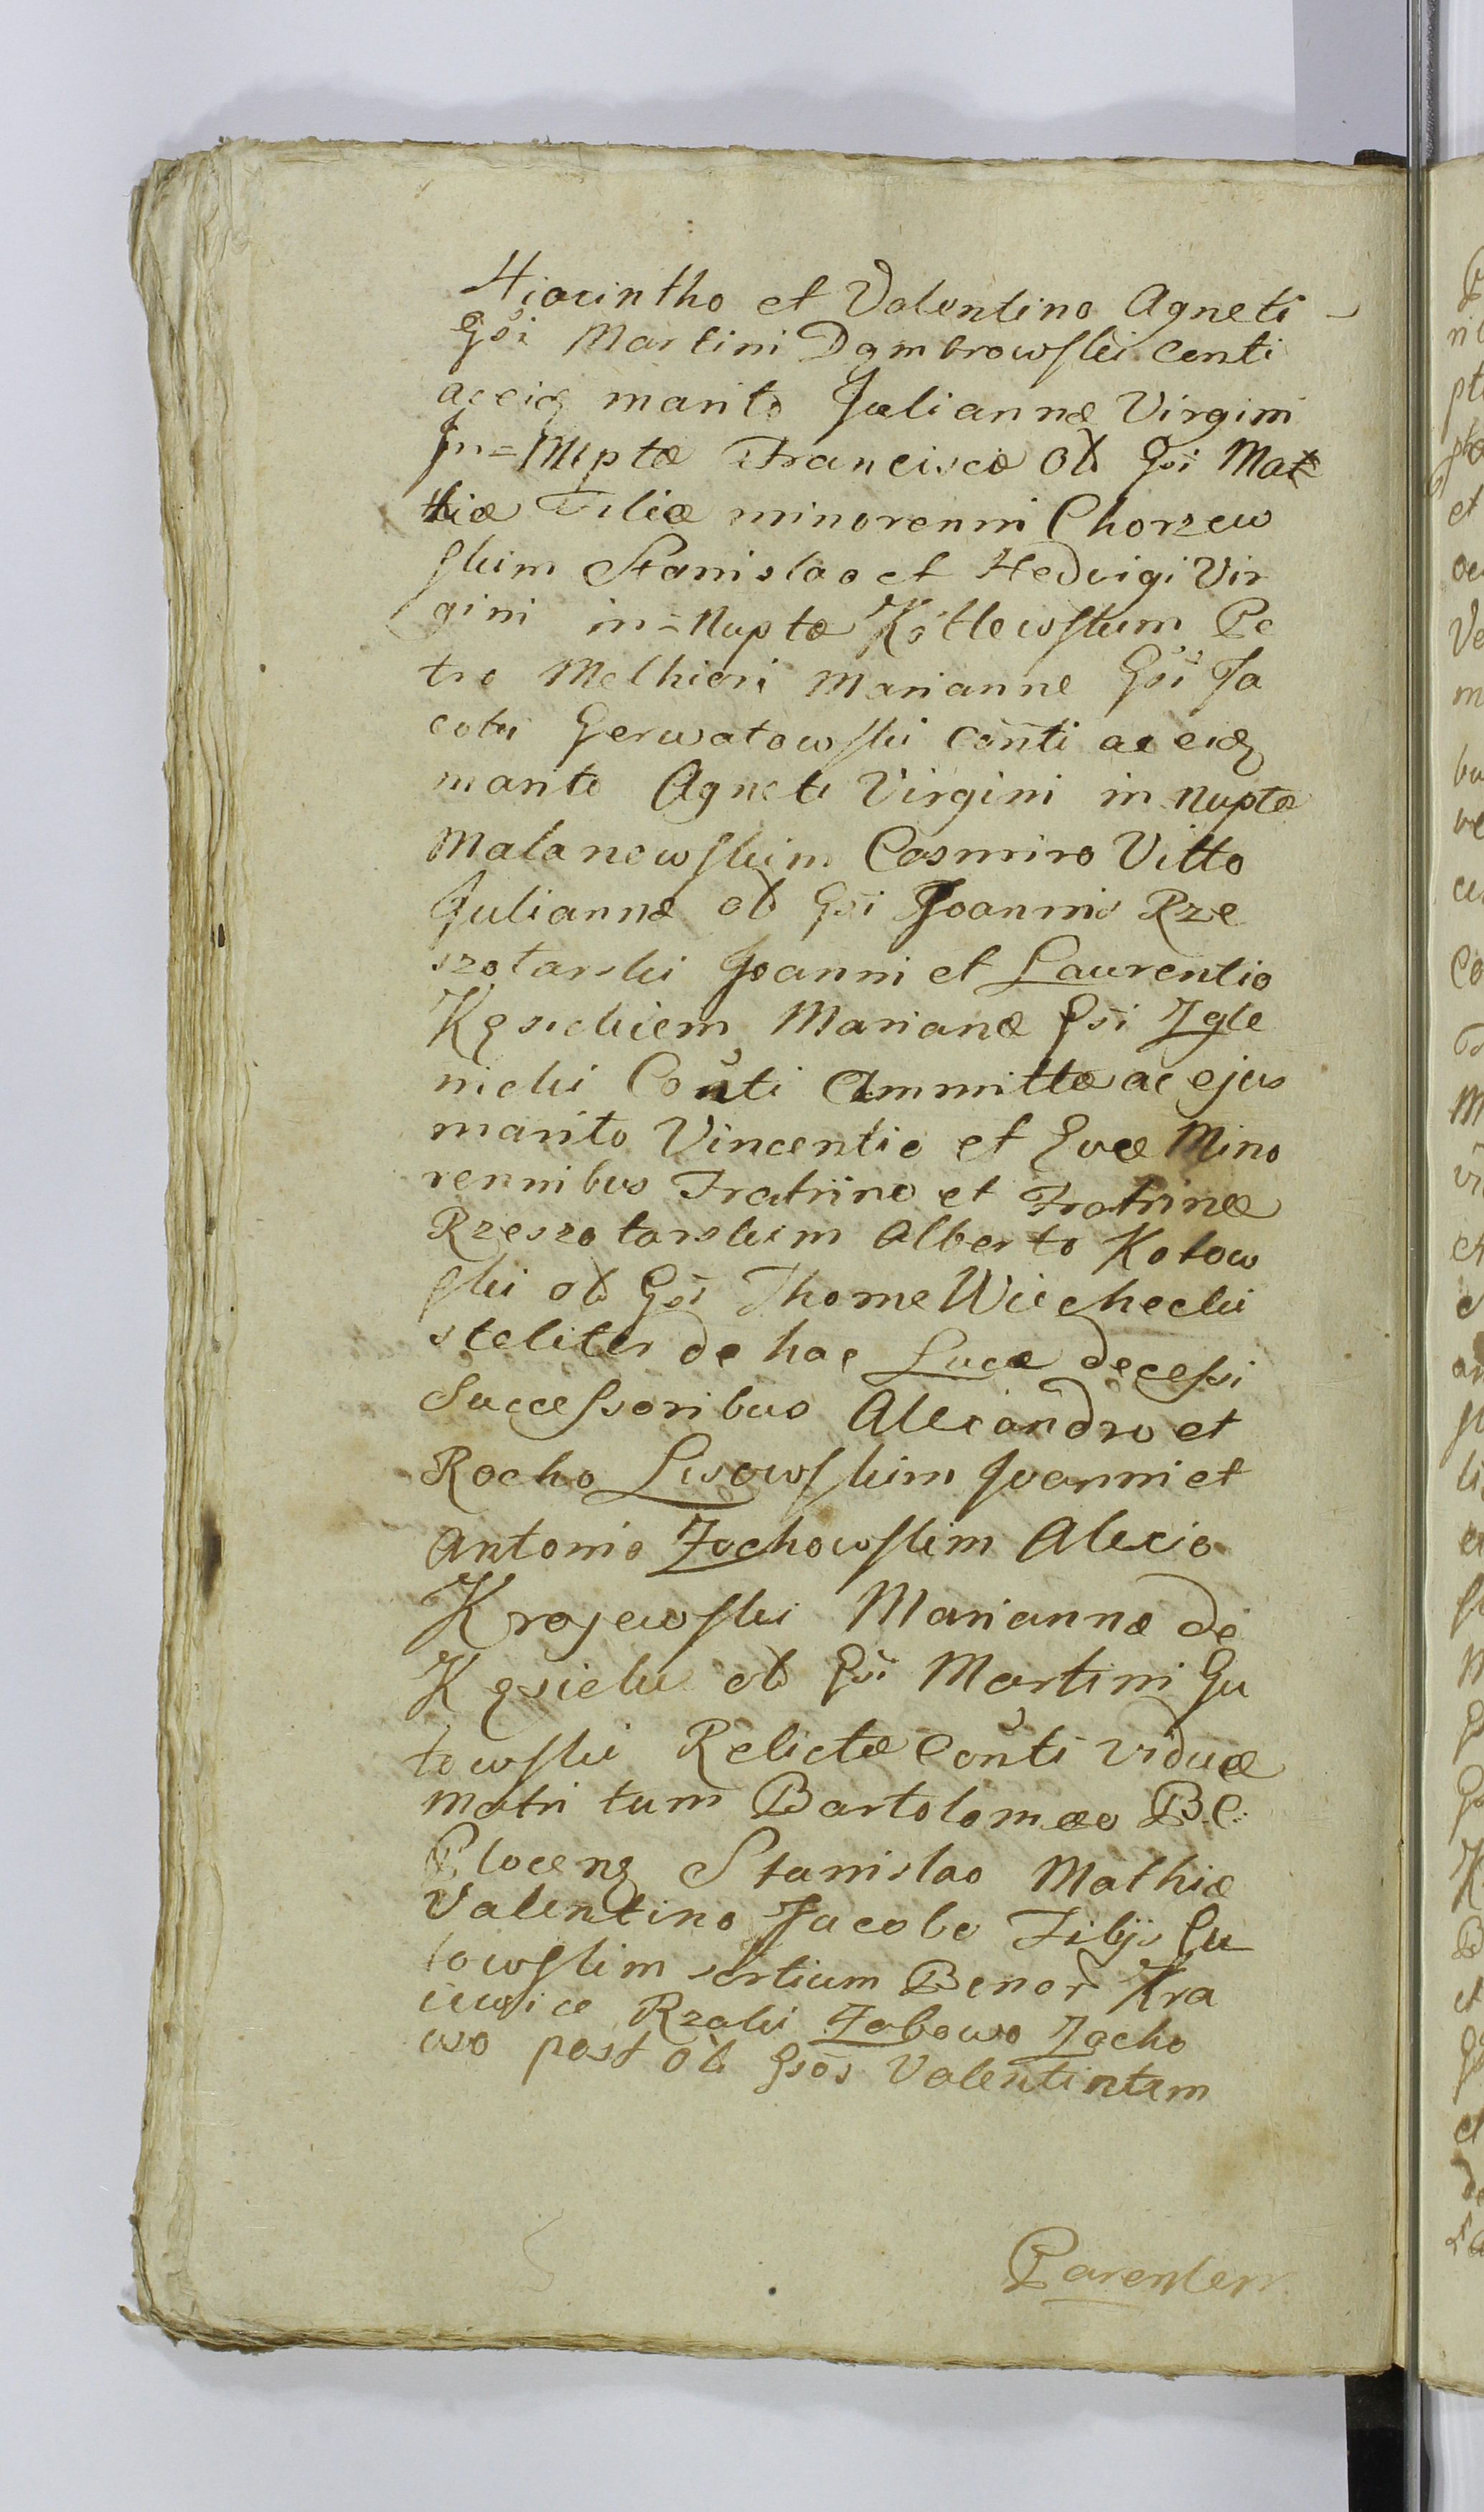 Hiacintho et Valentino Agneti
Gsi Martini Dąmbrowski Conti
ac eiq marito Juliannæ Virgini
In=Nuptæ Franciscæ Olr Gsi Mat
thiæ Filiæ minorenni Chorzew
skim Stanislao et Hedvigi Vir
gini in=Nuptæ Kotlewskim Pe
tro Melhiori Marianne Gsi Ja
cobi Gerwatowski Conti ac eiq
marito Agneti Virgini in nuptæ
Malanowskim Casmiro Vitto
Juliannæ olr Gsi Joannis Rze
szotarski Joanni et Laurentio
Kęsickiem Marianæ Gsi Igle
nicki Conti Ammittæ ac ejus
marito Vincentio et Evæ Mino
rennibus Fratrino et Fratrinæ
Rzeszotarskim Alberto Kotow
ski olr Gsi Thome Wiechecki
steliter de hac Luce decessi
Successoribus Alexandro et
Rocho Lisowskim Joanni et
Antonio Zochowskim Alexio
Krajewski Mariannæ de
Kęsicki olr Gsi Martini Gu
towski Relictæ Conti Viduæ
matri tum Bartolomæo B.C.
Plocenq Stanislao Mathiæ
Valentino Jacobo Filijs Gu
towskim sortium Benor Kra
iewice Rzaki Zabowo Zocho
wo post olr Gsos Valentintem
Parentem